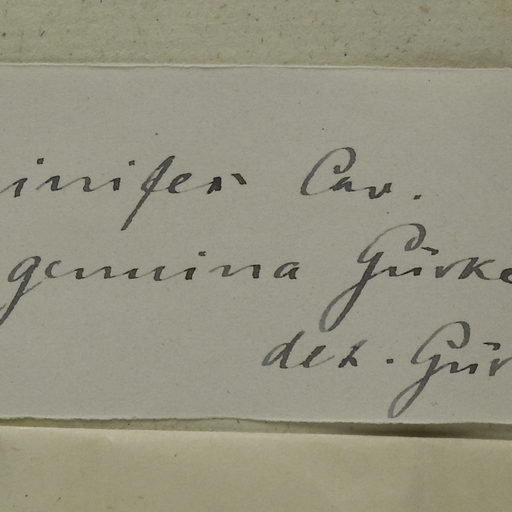 inifer Cav.
genuina Gürke
det. Gür